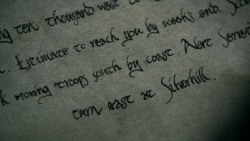 ten thousand west
Estimate to reach you by week's end.
moving troops south by coast. Alert
turn east at Silverhill.